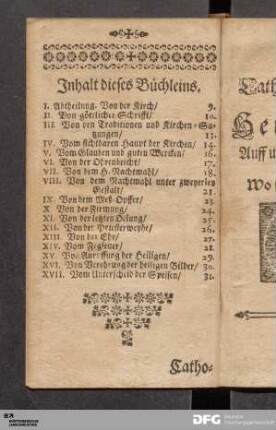 Inhalt dieses Büchleins.
I. Abtheilung. Von der Kirch/ 9.
II. Von göttlicher Schrifft/ 10.
III. Von den Traditionen und Kirchen-Sa-
tzungen/ 11.
IV. Vom sichtbaren Haupt der Kirchen/ 14.
V. Vom Glauben und guten Wercken/ 16.
VI. Von der Ohrenbeicht/ 17.
VII. Von dem H. Nachtmahl/ 18.
VIII. Von dem Nachtmahl unter zweyerley
Gestalt/ 21.
IX. Von dem Meß-Opffer/ 23.
X. Von der Firmung/ 24.
XI. Von der letzten Oelung/ 25.
XII. Von der Priesterweyhe/ 26.
XIII. Von der Ehe/ 27.
XIV. Vom Fegfeuer/ 28.
XV. Von Anruffung der Heiligen/ 29.
XVI. Von Verehrung der heiligen Bilder/ 30.
XVII. Vom Unterscheid der Speisen/ 31.
Catho-
Cath
Auff u
wo
DFG